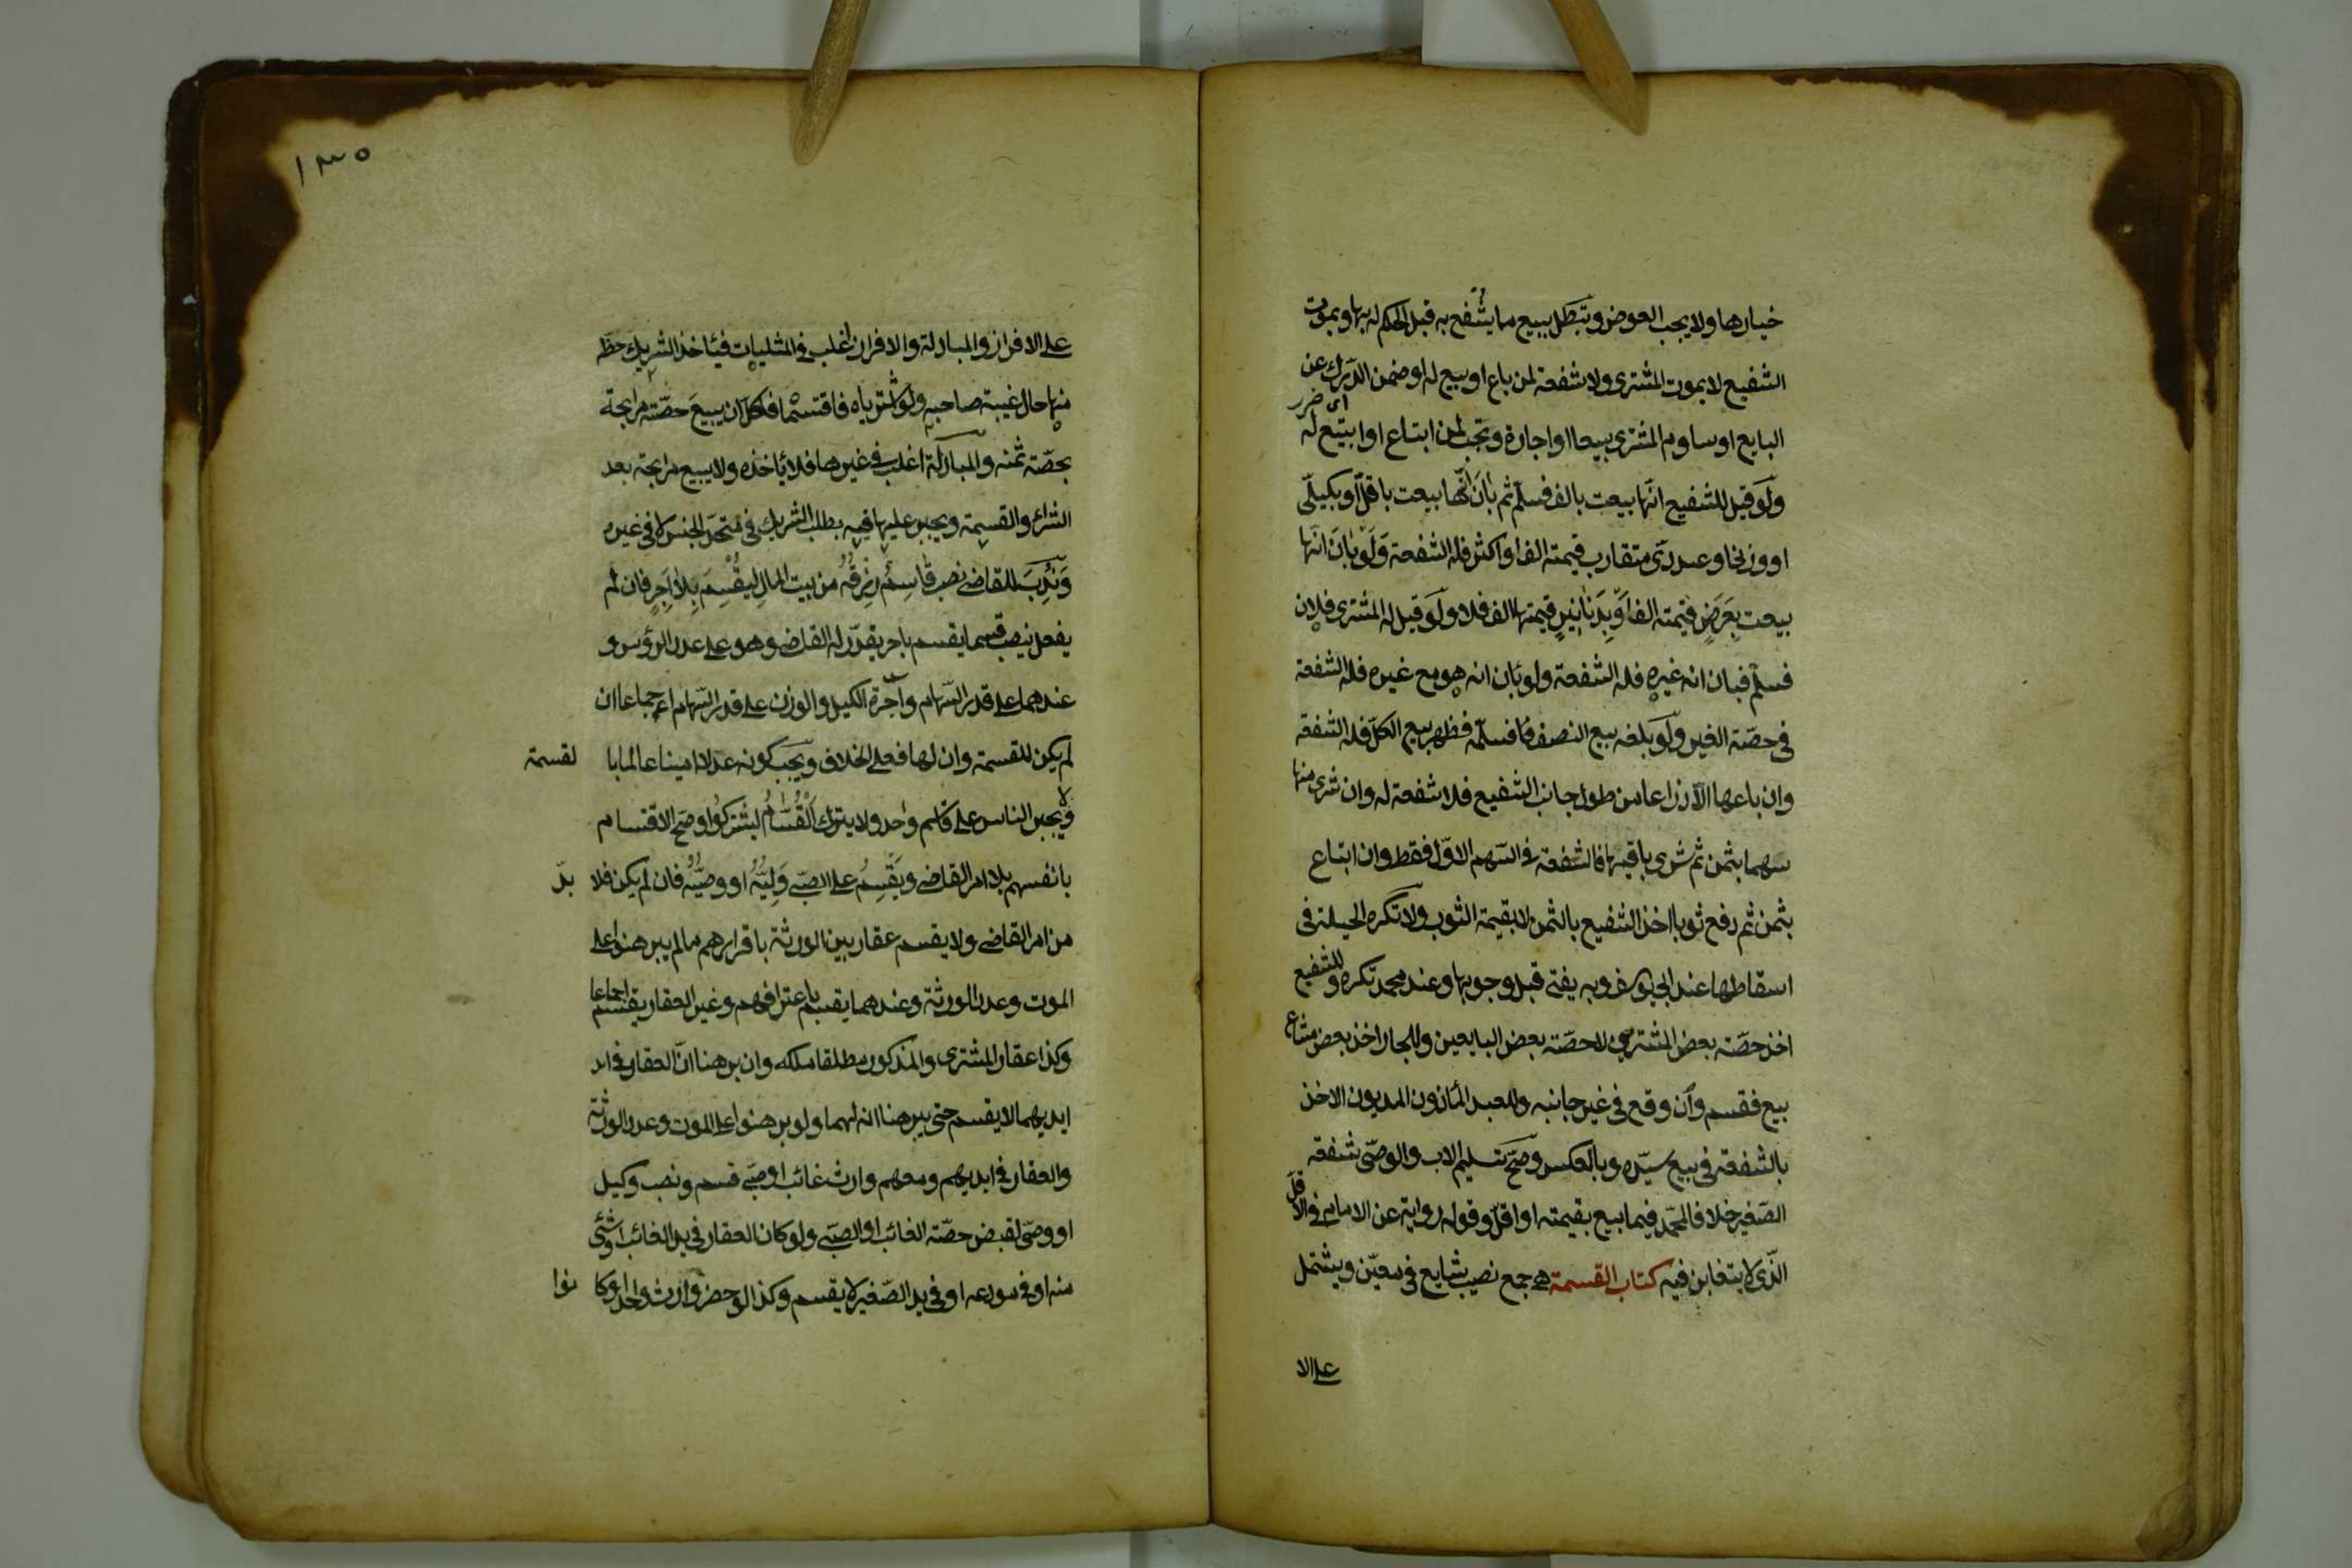 خيارها ولا يجب العوض وتبطل ببيع ما يشفع به قبل الحكم له بها وبموت
الشفيع لا بموت المشترى ولا شفعة لمن باع او بيع له او ضمن الدرك عن
اى ضرر
البايع او ساوم المشترى بيعا او اجارة وتجب لمن ابتاع او ابتيع له
ولو قيل للشفيع انها بيعت بالف فسلم ثم بان انها بيعت باقل او بكيلى
او وزنى او عددى متقارب قيمته الف او اكثر فله الشفعة ولو بان انها
بيعت بعرض قيمته الف او بدنانير قيمتها الف فلا ولو قيل له المشترى فلان
فسلم فبان انه غيره فله الشفعة ولو بان انه هو مع غيره فله الشفعة
فى حصة الغير ولو بلغه بيع النصف فسلم فظهر بيع الكل فله الشفعة
وان باعها الا ذراعا من طول جانب الشفيع فلا شفعة له وان شرى منها
سهما بثمن ثم شرى باقيها فالشفعة فى السهم الاول فقط وان ابتاع
بثمن ثم دفع ثوبا اخذ الشفيع بالثمن لا بقيمة الثوب ولا تكره الحيلة فى
اسقاطها عند ابى يوسف وبه يفتى قبل وجوبها وعند محمد تكره وللشفيع
اخذ حصة بعض المشترى لا حصة بعض البايعين وللجار اخذ بعض مشاع
بيع فقسم وان وقع فى غير جانبه وللعبد المأذون المديون الاخذ
بالشفعة فى بيع سيده وبالعكس وصح تسليم الاب والوصى شفعة
الصغير خلافا لمحمد فيما بيع بقيمته او اقل وقوله رواية عن الامام فى الاقل
الذى لا يتغابن فيه كتاب القسمة هى جمع نصيب شايع فى معين ويشتمل
على الا
١٣٥
على الافراز والمبادلة والافراز اغلب فى المثليات فيأخذ الشريك حظه
منها حال غيبة صاحبه ولو اشترياه فاقتسما فلكل ان يبيع حصته مرابحة
بحصة ثمنه والمبادلة اغلب فى غيرها فلا يأخذه ولا يبيع مرابحة بعد
الشراء والقسمة ويجبر عليها فيه بطلب الشريك فى متحد الجنس لا فى غيره
وندب للقاضى نصب قاسم رزقه من بيت المال ليقسم بلا اجر فان لم
يفعل نصب قسما يقسم باجر يقدر له القاضى وهو على عدد الرؤس و
عندهما على قدر السهام واجرة الكيل والوزن على قدر السهام اجماعا ان
لم يكن للقسمة وان لها فعلى الخلاف ويجب كونه عدلا امينا عالما با لقسمة
ولا يجبر الناس على قاسم واحد ولا يترك القسام ليشتركوا وصح الاقتسام
بانفسهم بلا امر القاضى ويقسم على الصبى وليه او وصيه فان لم يكن فلا بد
من امر القاضى ولا يقسم عقار بين الورثة باقرارهم ما لم يبرهنوا على
الموت وعدد الورثة وعندهما يقسم باعترافهم وغير العقار يقسم اجماعا
وكذا عقار المشترى والمذكور مطلقا ملكه وان برهنا ان العقار فى اند
ايديهما لا يقسم حتى يبرهنا انه لهما ولو برهنوا على الموت وعدد الورثة
والعقار فى ايديهم ومعهم وارث غائب او صبى قسم ونصب وكيل
او وصى لقبض حصة الغائب او الصبى ولو كان العقار فى يد الغائب او شئ
منه او فى مودعه او فى يد الصغير لا يقسم وكذا لو حضر وارث واحد او كا نوا